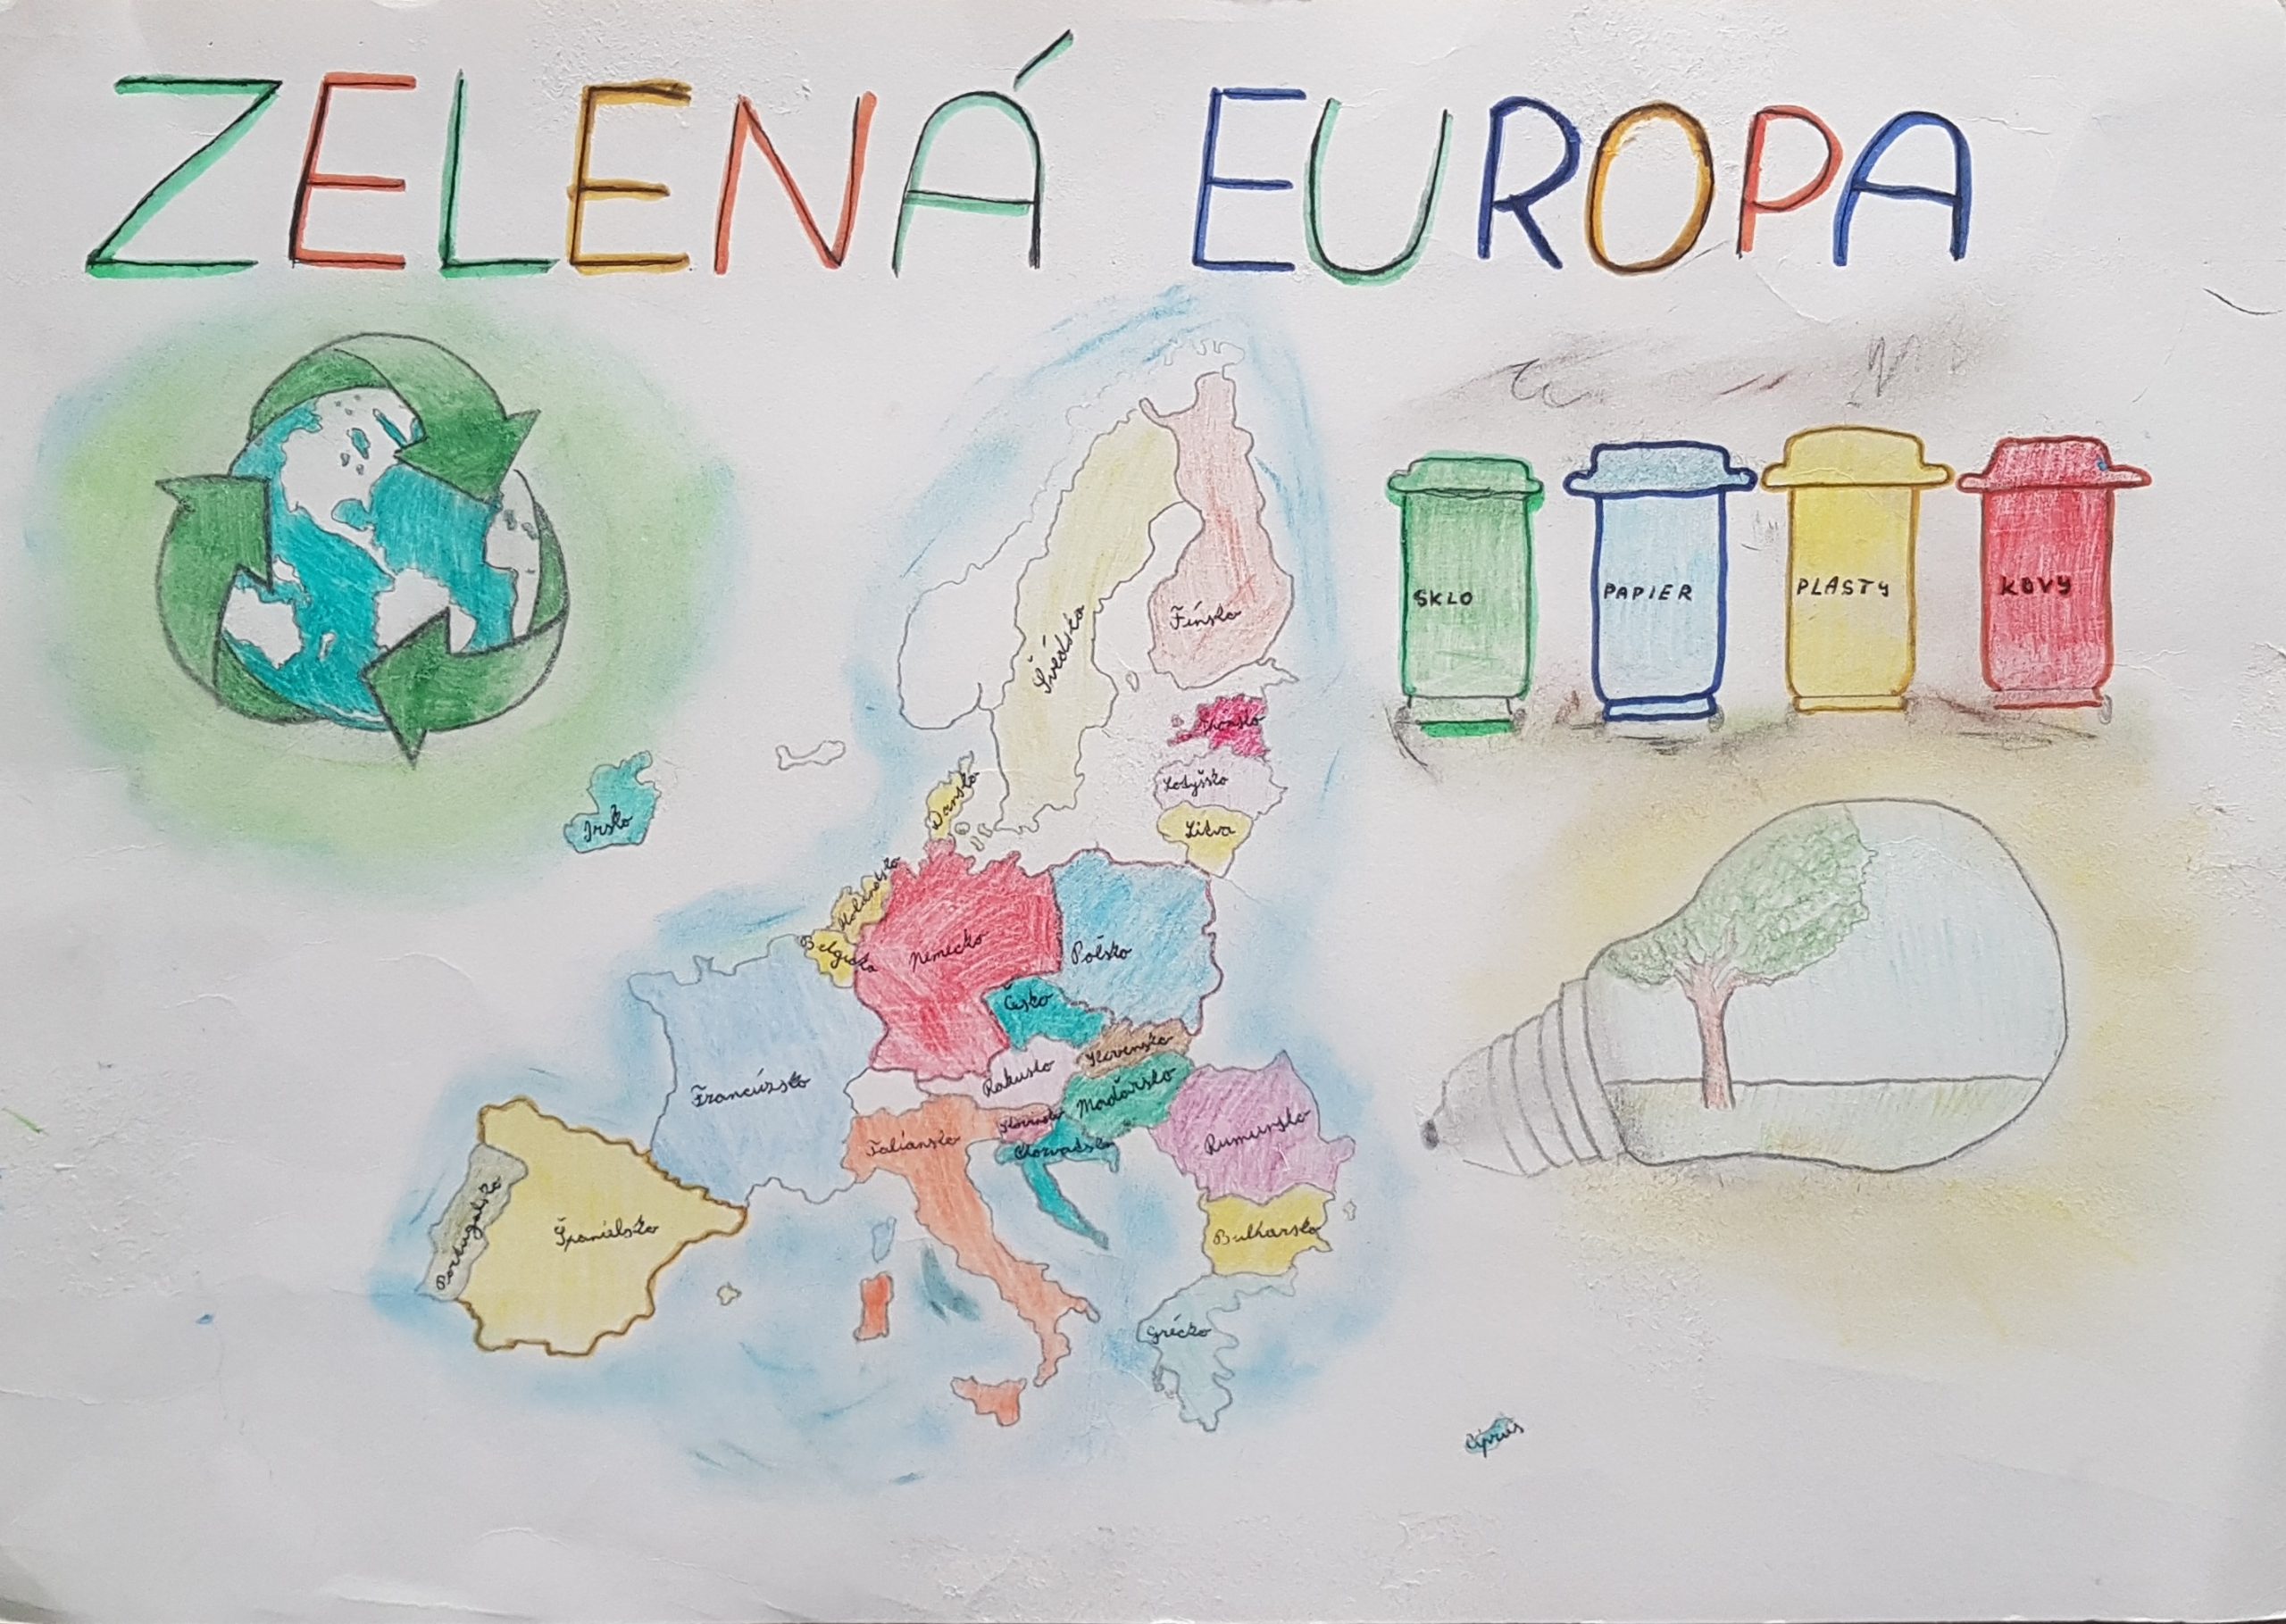 ZELENÁ EUROPA
SKLO
PAPIER
PLASTY
KOVY
Švédsko
Fínsko
Lotyšsko
Litva
Dánsko
Írsko
Holandsko
Belgicko
Nemecko
Poľsko
Česko
Slovensko
Rakúsko
Maďarsko
Francúzsko
Taliansko
Chorvátsko
Rumunsko
Bulharsko
Portugalsko
Španielsko
Grécko
Cyprus